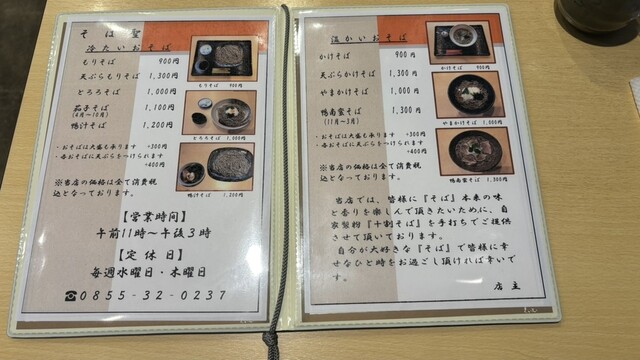 そば聖
冷たいおそば
もりそば 900円
天ぷらもりそば 1,300円
とろろそば 1,000円
茄子そば 1,100円
(4月~10月)
鴨汁そば 1,200円
・おそばは大盛も承ります +300円
・各おそばに天ぷらをつけられます
+400円
※当店の価格は全て消費税
込となっております。
【営業時間】
午前11時~午後3時
【定休日】
毎週水曜日・木曜日
☎0855-32-0237
もりそば 900円
とろろそば 1,000円
鴨汁そば 1,200円
温かいおそば
かけそば 900円
天ぷらかけそば 1,300円
やまかけそば 1,000円
鴨南蛮そば 1,300円
(11月~3月)
・おそばは大盛も承ります +300円
・各おそばに天ぷらをつけられます
+400円
※当店の価格は全て消費税
込となっております。
かけそば 900円
やまかけそば 1,000円
鴨南蛮そば 1,300円
当店では、皆様に『そば』本来の味
と香りを楽しんで頂きたいために、自
家製粉『十割そば』を手打ちでご提供
させて頂いております。
自分が大好きな『そば』で皆様に幸
せなひと時をお過ごし頂ければ幸いで
す。
店主